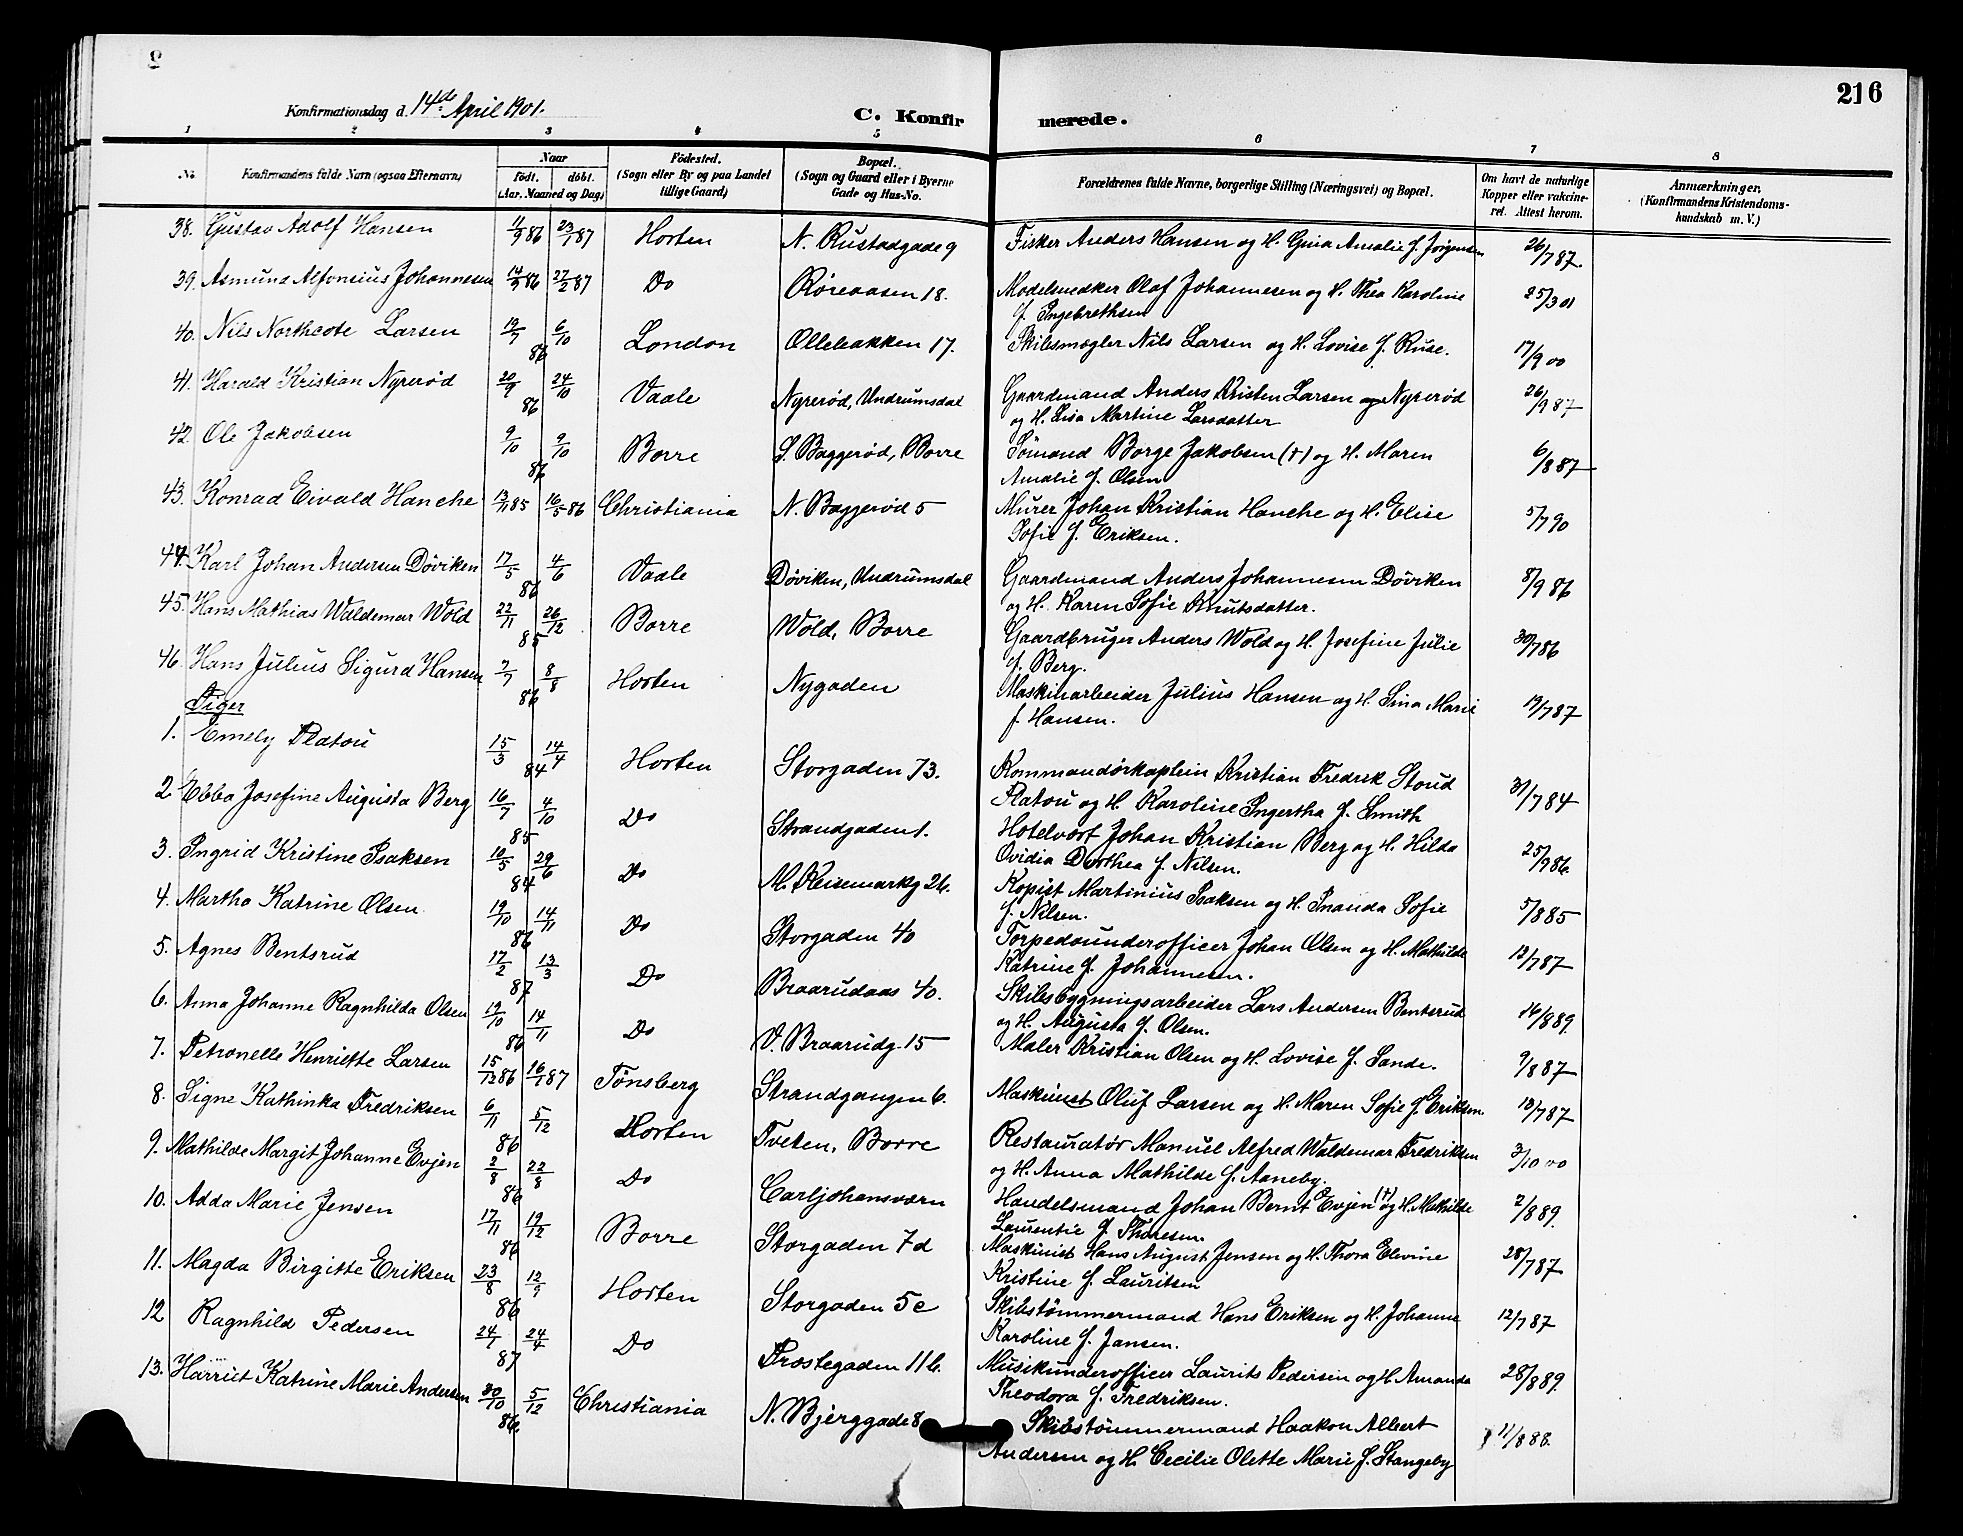 216
Konfirmationsdag d. 14d April 1901.
C. Konfirmerede.
1 2 3 4 5 6 7 8
No
Konfirmandens fulde Navn (ogsaa Efternavn)
Naar
födt. döbt.
(Aar, Maaned og Dag)
Födested.
(Sogn eller By og paa Landet tillige Gaard)
Bopæl.
(Sogn og Gaard eller i Byerne Gade og Hus-No.
Forældrenes fulde Navne, borgerlige Stilling (Næringsvei) og Bopæl.
Om havt de naturlige Kopper eller vakcineret. Attest herom.
Anmærkninger.
(Konfirmandens Kristendomskundskab m. V.)
38. Gustav Adolf Hansen 11/9 86 23/1 87 Horten N. Rustadgade 9 Fisker Anders Hansen og H. Gina Amalie f. Jørgensen 26/7 87.
39. Asmund Alfonsius Johannesen 14/9 86 27/2 87 Do Røreaasen 18. Modelsnedker Olaf Johannesen og H. Thea Karoline
f. Ingebrethsen 25/3 01
40. Nils Northcote Larsen 19/7 6/10 86 London Øllebakken 17. Skibsmægler Nils Larsen og H. Lovise f. Ruse. 17/9 00
41. Harald Kristian Nyrerød 20/9 24/10 86 Vaale Nyrerød, Undrumsdal Gaardmand Anders Kristen Larsen Nyrerød
og H. Lisa Martine Larsdatter 26/9 87
42. Ole Jakobsen 9/10 9/10 87 Borre S. Baggerød, Borre Sømand Borge Jakobsen (†) og H. Maren
Amalie f. Olsen 6/8 87
43. Konrad Eivald Hanche 13/11 85 16/5 86 Christiania N. Baggerød 5 Murer Johan Kristian Hanche og H. Elise
Sofie f. Eriksen. 5/7 90
44. Karl Johan Andersen Döviken 17/5 4/6 86 Vaale Döviken, Undrumsdal Gaardmand Anders Johannesen Döviken
og H. Karen Sofie Knutsdatter. 8/9 86
45. Hans Mathias Waldemar Wold 22/11 26/12 85 Borre Wold, Borre Gaardbruger Anders Wold og H. Josefine Julie
f. Berg. 30/7 86
46. Hans Julius Sigurd Hansen 7/7 8/8 86 Horten Nygaden Maskinarbeider Julius Hansen og H. Sina Marie
f. Hansen. 19/7 87
Piger
1. Emely Platou 15/3 14/4 84 Horten Storgaden 73. Kommandörkaptein Kristian Fredrik Stoud
Platou og H. Karoline Ingertha f. Smith 31/7 84
2 Ebba Josefine Augusta Berg 16/7 4/10 85 Do Strandgaden 1. Hotelvært Johan Kristian Berg og H. Hilda
Ovidia Dorthea f. Nilsen. 25/9 86.
3. Ingrid Kristine Isaksen 10/5 29/6 84 Do M. Keisemarkg 26. Kopist Martinius Isaksen og H. Inanda Sofie
f. Nilsen. 5/8 85
4. Martha Katrine Olsen 19/10 14/11 86 Do Storgaden 40 Torpedounderofficer Johan Olsen og H. Mathilde
Katrine f. Johannesen. 12/7 87
5. Agnes Bentsrud 17/2 13/3 87 Do Braarudaas 40. Skibsbygningsarbeider Lars Andersen Bentsrud
og H. Augusta f. Olsen. 14/8 89.
6. Anna Johanne Ragnhilda Olsen 12/10 14/11 86 Do V. Braarudg. 15 Maler Kristian Olsen og H. Lovise f. Sande. 9/8 87
7. Petronelle Henriette Larsen 15/12 86 16/1 87 Tønsberg Strandgangen 6. Maskinist Oluf Larsen og H. Maren Sofie f. Eriksen. 13/7 87
8. Signe Kathinka Fredriksen 6/11 5/12 86 Horten Tveten, Borre Restauratør Manuel Alfred Waldemar Fredriksen
og H. Anna Mathilde f. Aaneby. 3/10 00
9. Mathilde Margit Johanne Evjen 2/8 22/8 86 Do Carljohansværn Handelsmand Johan Bernt Evjen (†) og H. Mathilde
Laurentie f. Thoresen. 2/8 89.
10. Adda Marie Jensen 17/11 19/12 86 Borre Storgaden 7d Maskinist Hans August Jensen og H. Thora Elevine
Kristine f. Lauritsen 28/7 87
11. Magda Birgitte Eriksen 23/8 12/9 86 Horten Storgaden 5c Skibstømmermand Hans Eriksen og H. Johanne
Karoline f. Jansen. 12/7 87
12 Ragnhild Pedersen 24/1 24/4 87 Do Præstegaden 11 b. Musikunderofficer Laurits Pedersen og H. Amanda
Theodora f. Fredriksen. 28/8 89.
13. Harriet Katrine Marie Andersen 30/10 5/12 86. Christiania N. Bjerggade 8 Skibstømmermand Haakon Albert
Andersen og H. Cecilie Olette Marie f. Stangeby 11/8 88.